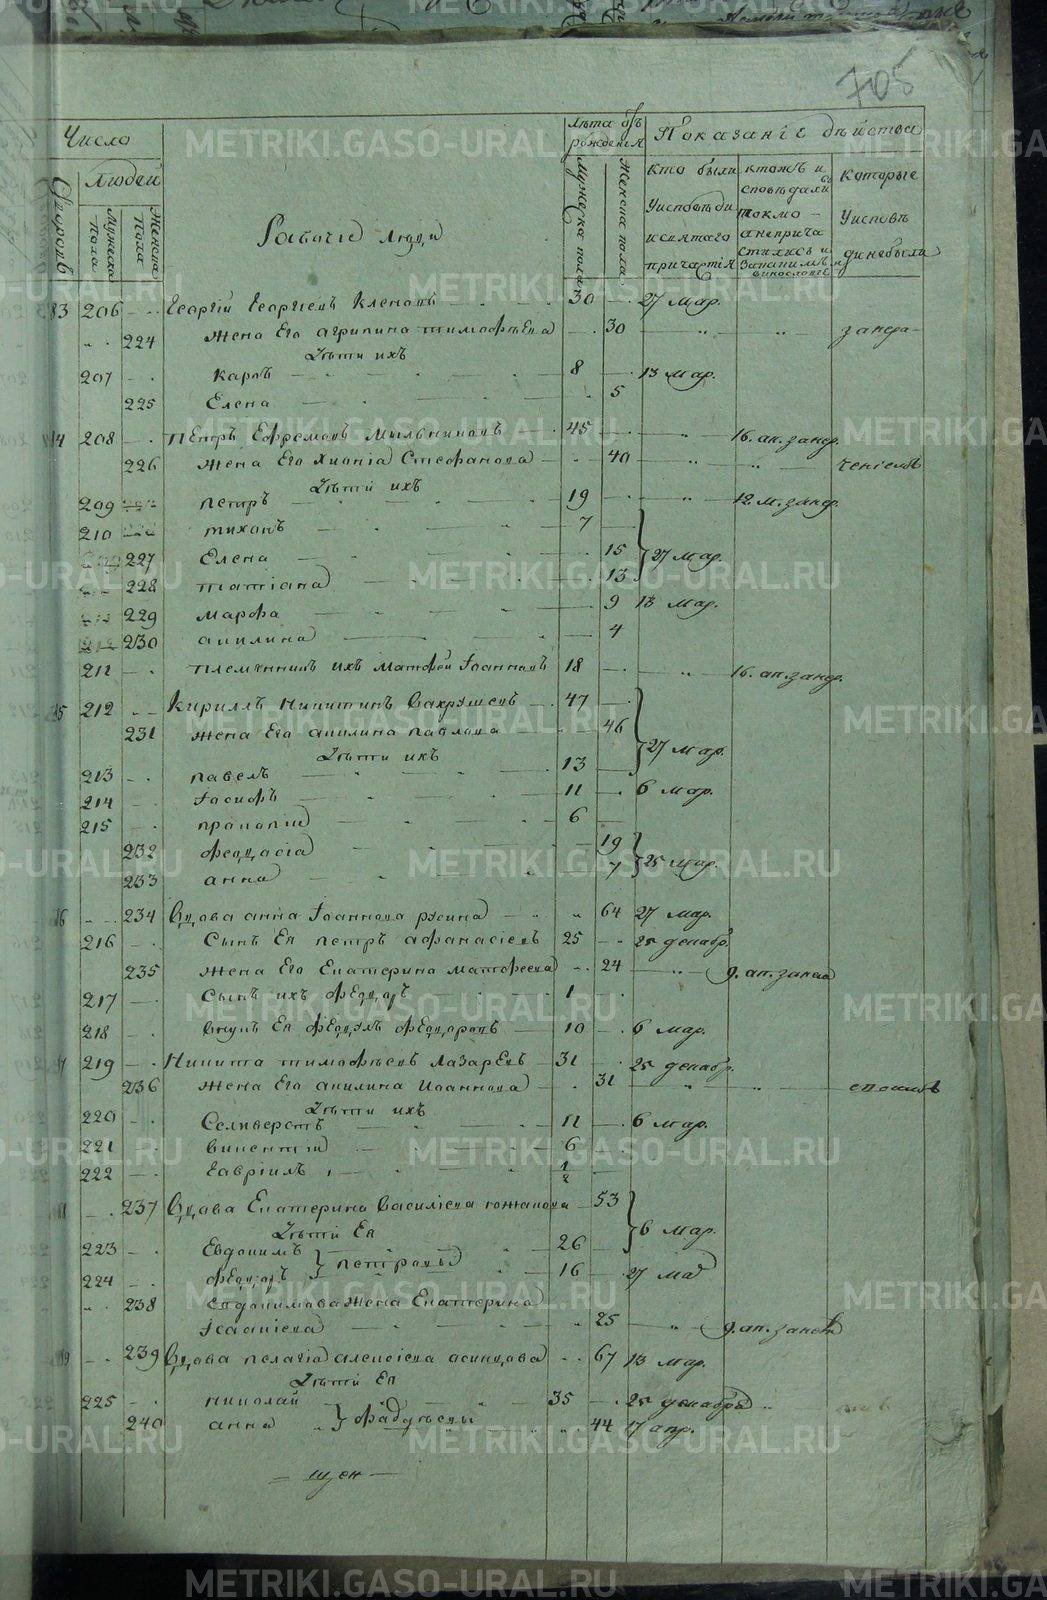 705
Число Лѣта отъ рожденія Показаніе дѣйства
Людей
Дворовъ Мужеска пола Женска пола Рабочіе люди Мужеска пола Женска пола
кто были Уисповѣди исвятаго причастія
ктожъ исповѣдали токмо анепричастились и Закакимъ винословіемъ
которые Уисповѣди небыли
83 206 Георгій Георгіевъ Кленовъ 30 27 мар.
224 жена Его агрипина тимофѣева 30 занера-
Дѣти ихъ
207 карпъ 8 13 мар.
225 Елена 5
84 208 Петръ Ефремовъ Мыльниковъ 45 16. ап. занер.
226 жена Его хионіа Стефанова 40 ченіемъ
Дѣти ихъ
209 петръ 19 12. м. занер.
210 тихонъ 7
227 Елена 15 27 мар.
228 татіана 13
229 марфа 9 13 мар.
230 акилина 4
211 племянникъ ихъ Матфей Іоанновъ 18 16. ап. занер.
85 212 Кириллъ Никитинъ Вахрушевъ 47
231 жена Его акилина павлова 46 27 мар.
Дѣти ихъ
213 павелъ 13
214 Іосифъ 11 6 мар.
215 прокопій 6
232 феодосіа 19 25 мар.
233 анна 7
86 234 Вдова анна Іоаннова русина 64 27 мар.
216 Сынъ Ея петръ афанасіевъ 25 25 декабр.
235 жена Его Екатерина матфеева 24 9. ап. запов
217 Сынъ ихъ феодоръ 1
218 внукъ Ея феодулъ феодоровъ 10 6 мар.
87 219 Никита тимофѣевъ Лазаревъ 31 25 декабр.
236 жена Его акилина Иоаннова 31
Дѣти ихъ
220 Селиверстъ 11 6 мар.
221 викентій 6
222 Гавріилъ 1/2
88 237 Вдова Екатерина Василіева 53
Дѣти Ея 6 мар.
223 Евдокимъ петровы 26
224 феодоръ 16 27 мар
238 Евдокимова жена Екатерина
Іоакіева 25 9. ап. занер
89 239 Вдова пелагіа алексіева 67 13 мар.
Дѣти Ея
225 николай 35 25 декабря
240 анна фадѣевы 44 17 апр.
METRIKI.GASO-URAL.RU